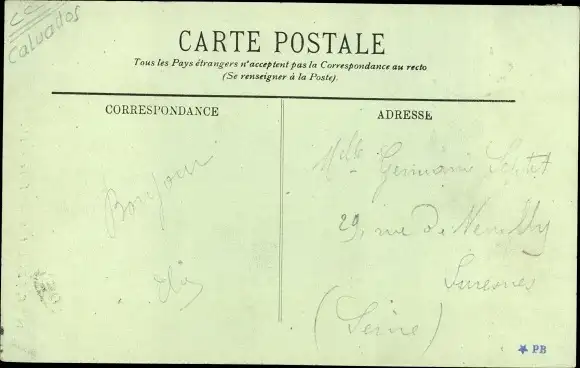 Calvados
CARTE POSTALE
Tous les Pays étrangers n'acceptent pas la Correspondance au recto
(Se renseigner à la Poste).
CORRESPONDANCE
Bonjour
ADRESSE
Melle Germaine
29, rue de Neuilly
Suresnes
(Seine)
★ PB